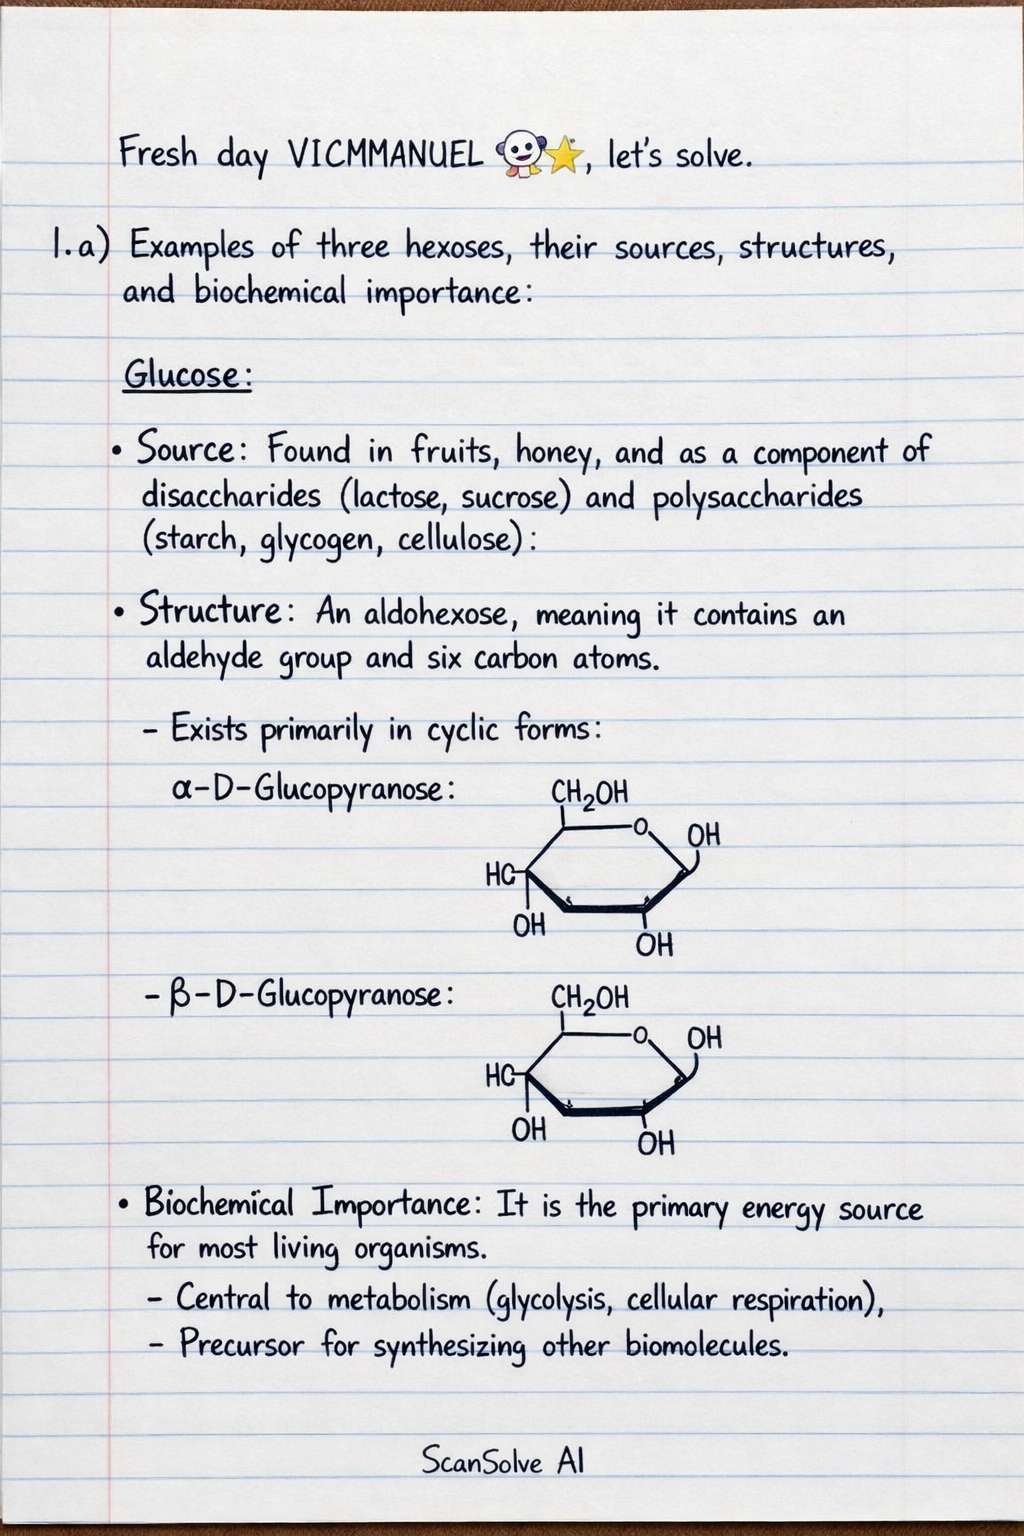 Fresh day VICMMANUEL, let's solve.
1.a) Examples of three hexoses, their sources, structures,
and biochemical importance:
Glucose:
• Source: Found in fruits, honey, and as a component of
disaccharides (lactose, sucrose) and polysaccharides
(starch, glycogen, cellulose):
• Structure: An aldohexose, meaning it contains an
aldehyde group and six carbon atoms.
- Exists primarily in cyclic forms:
α-D-Glucopyranose:
CH₂OH
O
OH
HC
OH
OH
- β-D-Glucopyranose:
CH₂OH
O
OH
HC
OH
OH
• Biochemical Importance: It is the primary energy source
for most living organisms.
- Central to metabolism (glycolysis, cellular respiration),
- Precursor for synthesizing other biomolecules.
ScanSolve AI